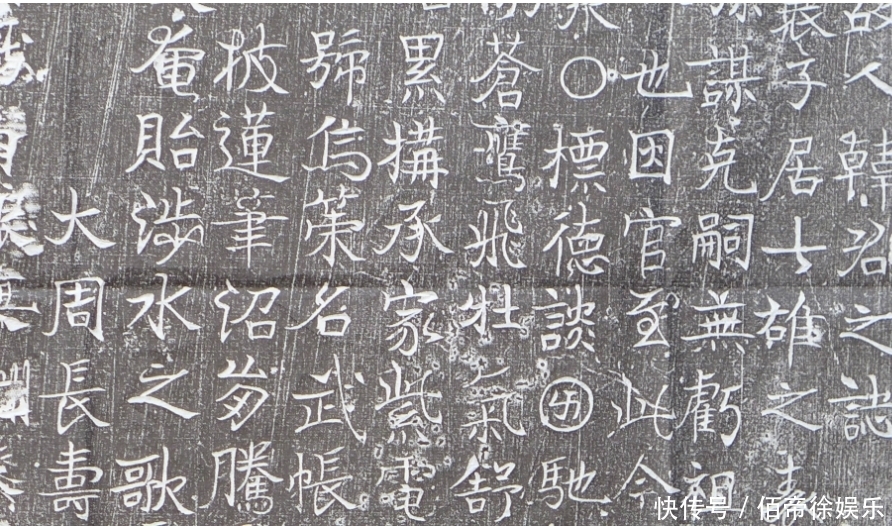 故人韓之誌
裴子居士雄之
孫謀克嗣無虧祖
也因官至此今
〇標德談馳
蒼鷹飛壯氣舒
累構承家紫電
號焉策名武帳
披蓮筆沼岁騰
奄貽涉水之歌
大周長壽
快传号 / 佰帝徐娱乐